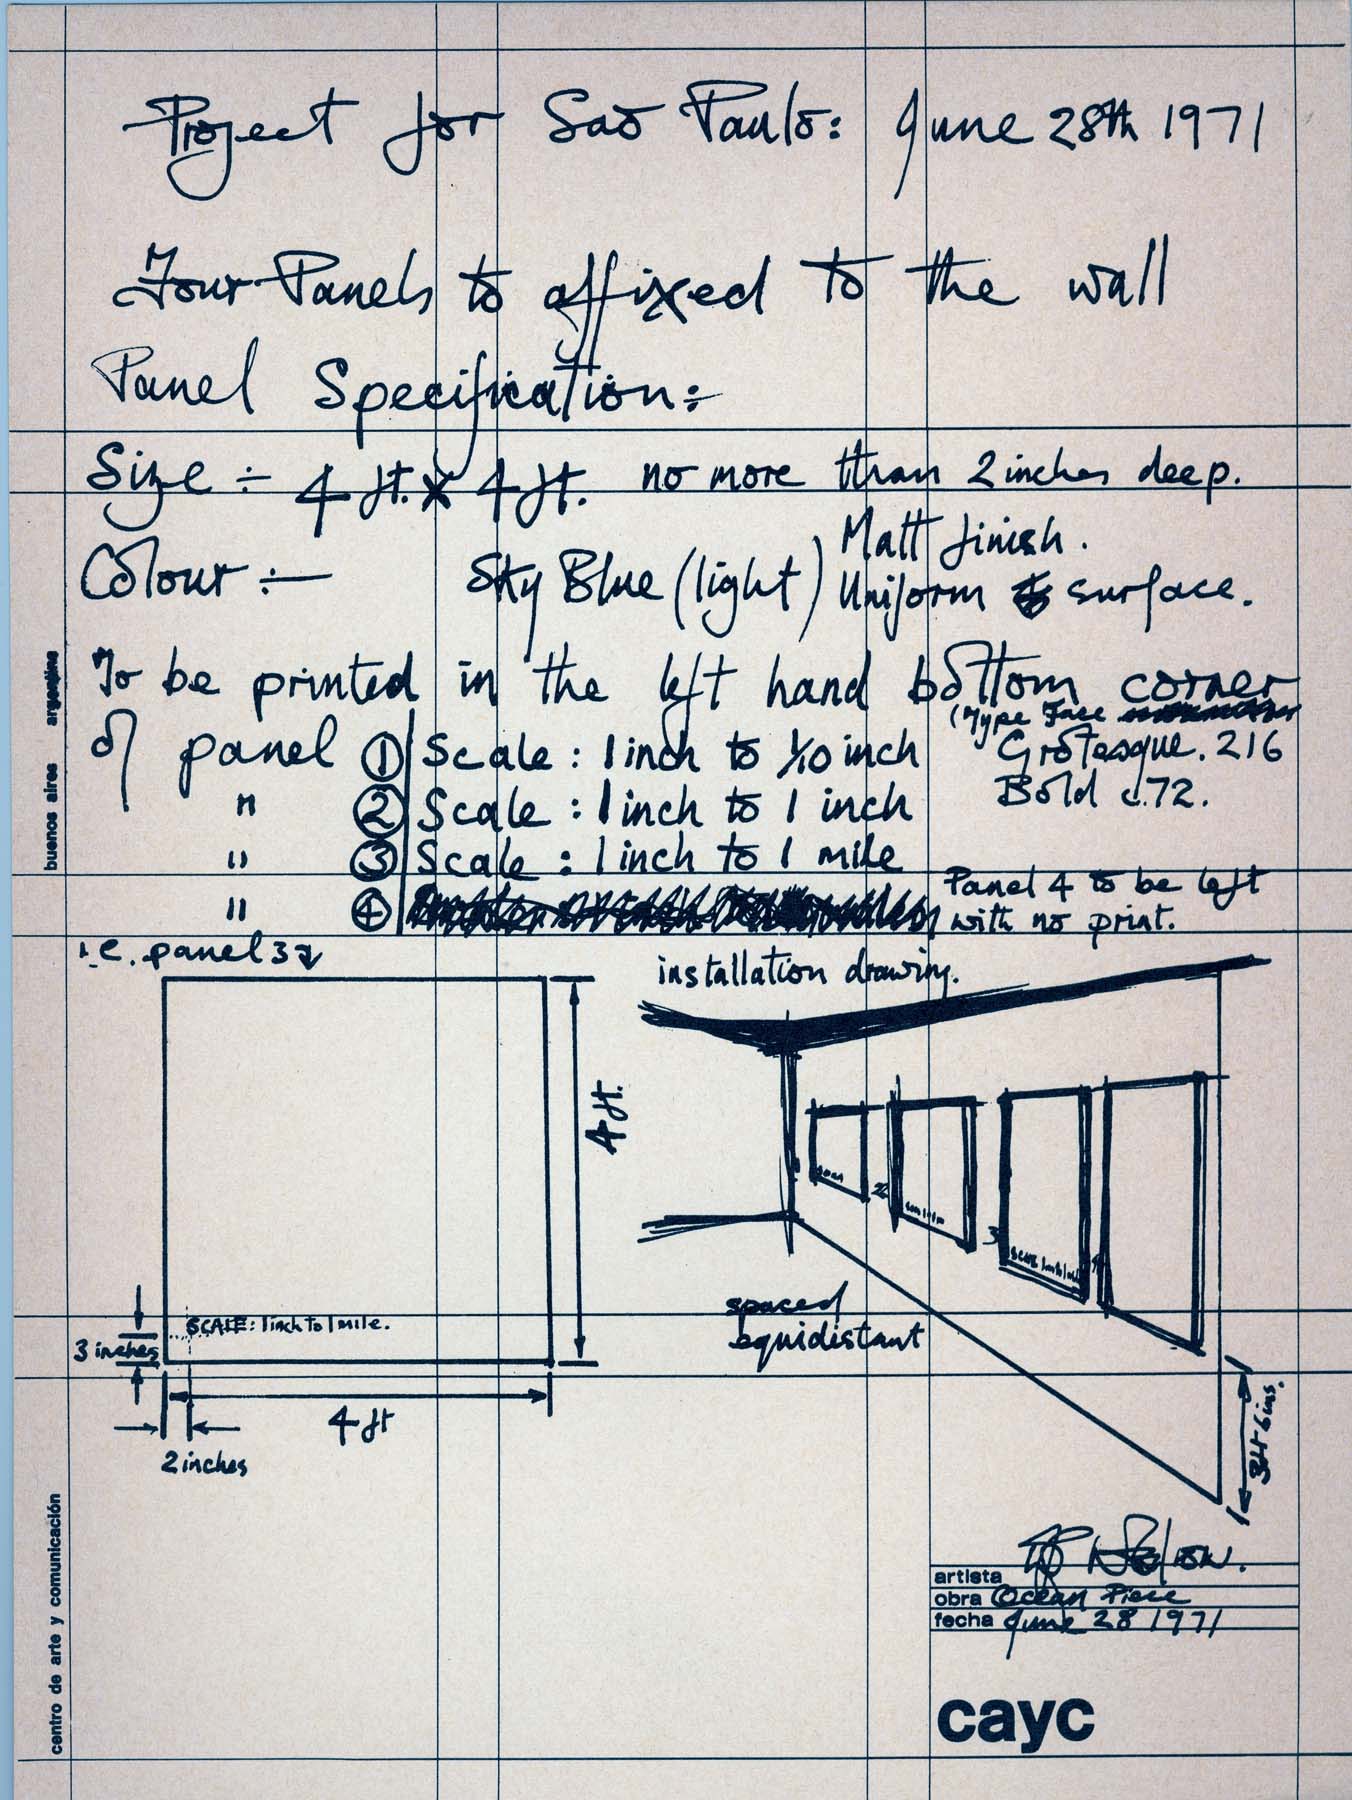 Project for Saō Paulo: June 28th 1971
Four Panels to affixed to the wall
Panel Specification:-
Size ÷ 4 ft. x 4 ft. no more than 2 inches deep.
Colour :- Sky Blue (light) Matt finish.
Uniform surface.
To be printed in the left hand bottom corner
(Type Face
of panel ① Scale : 1 inch to 1/10 inch Grotesque. 216
" ② Scale : 1 inch to 1 inch Bold c.72.
" ③ Scale : 1 inch to 1 mile
" ④ Panel 4 to be left
with no print.
i.e. panel 3
installation drawing.
4 ft.
SCALE: 1 inch to 1 mile.
3 inches
4 ft
2 inches
2
3
SCALE 1 inch to 1 mile
4
spaced
equidistant
3ft 6 ins.
artista
obra Ocean Piece
fecha June 28 1971
cayc
buenos aires argentina
centro de arte y comunicación